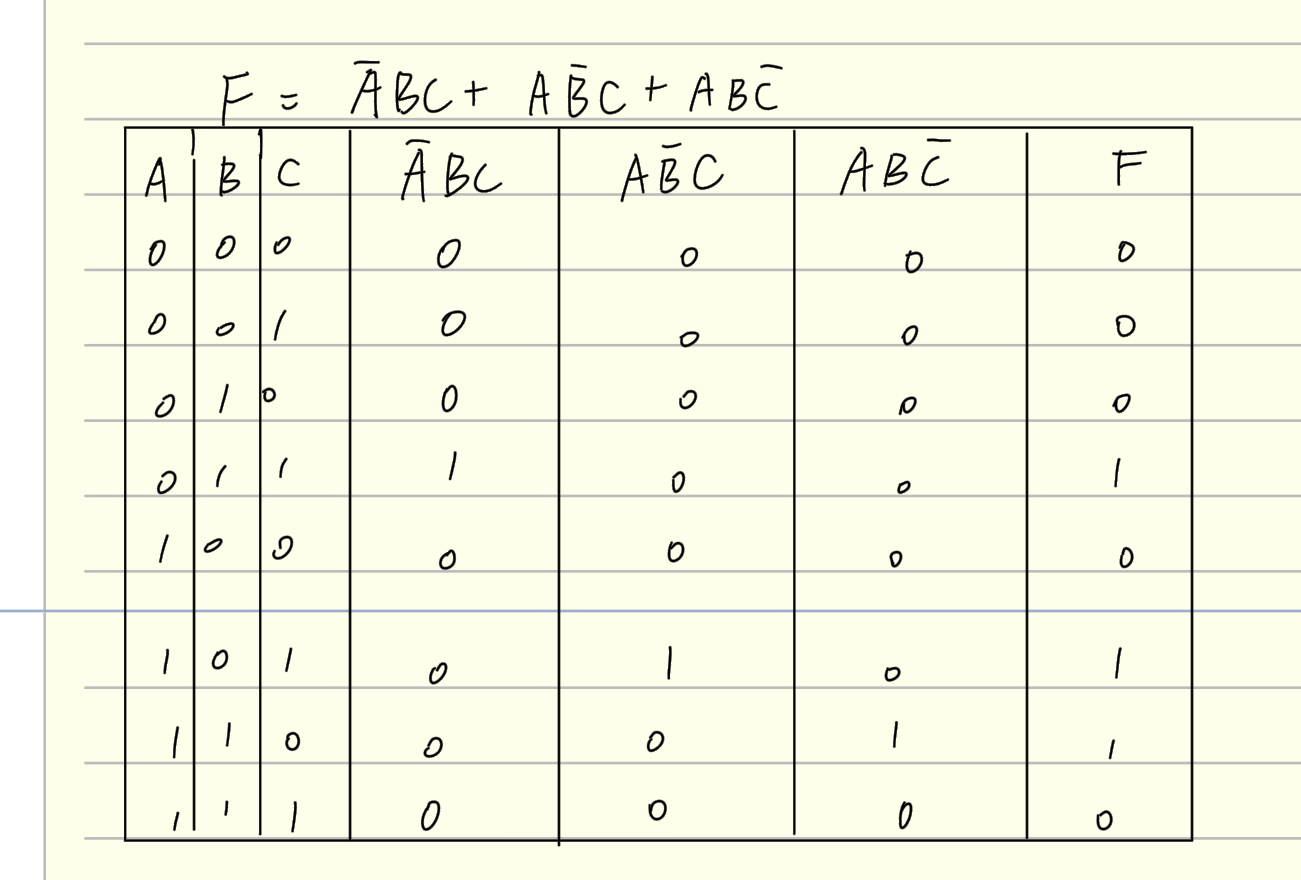 F = A̅BC + AB̅C + ABC̅
A B C A̅BC AB̅C ABC̅ F
0 0 0 0 0 0 0
0 0 1 0 0 0 0
0 1 0 0 0 0 0
0 1 1 1 0 0 1
1 0 0 0 0 0 0
1 0 1 0 1 0 1
1 1 0 0 0 1 1
1 1 1 0 0 0 0